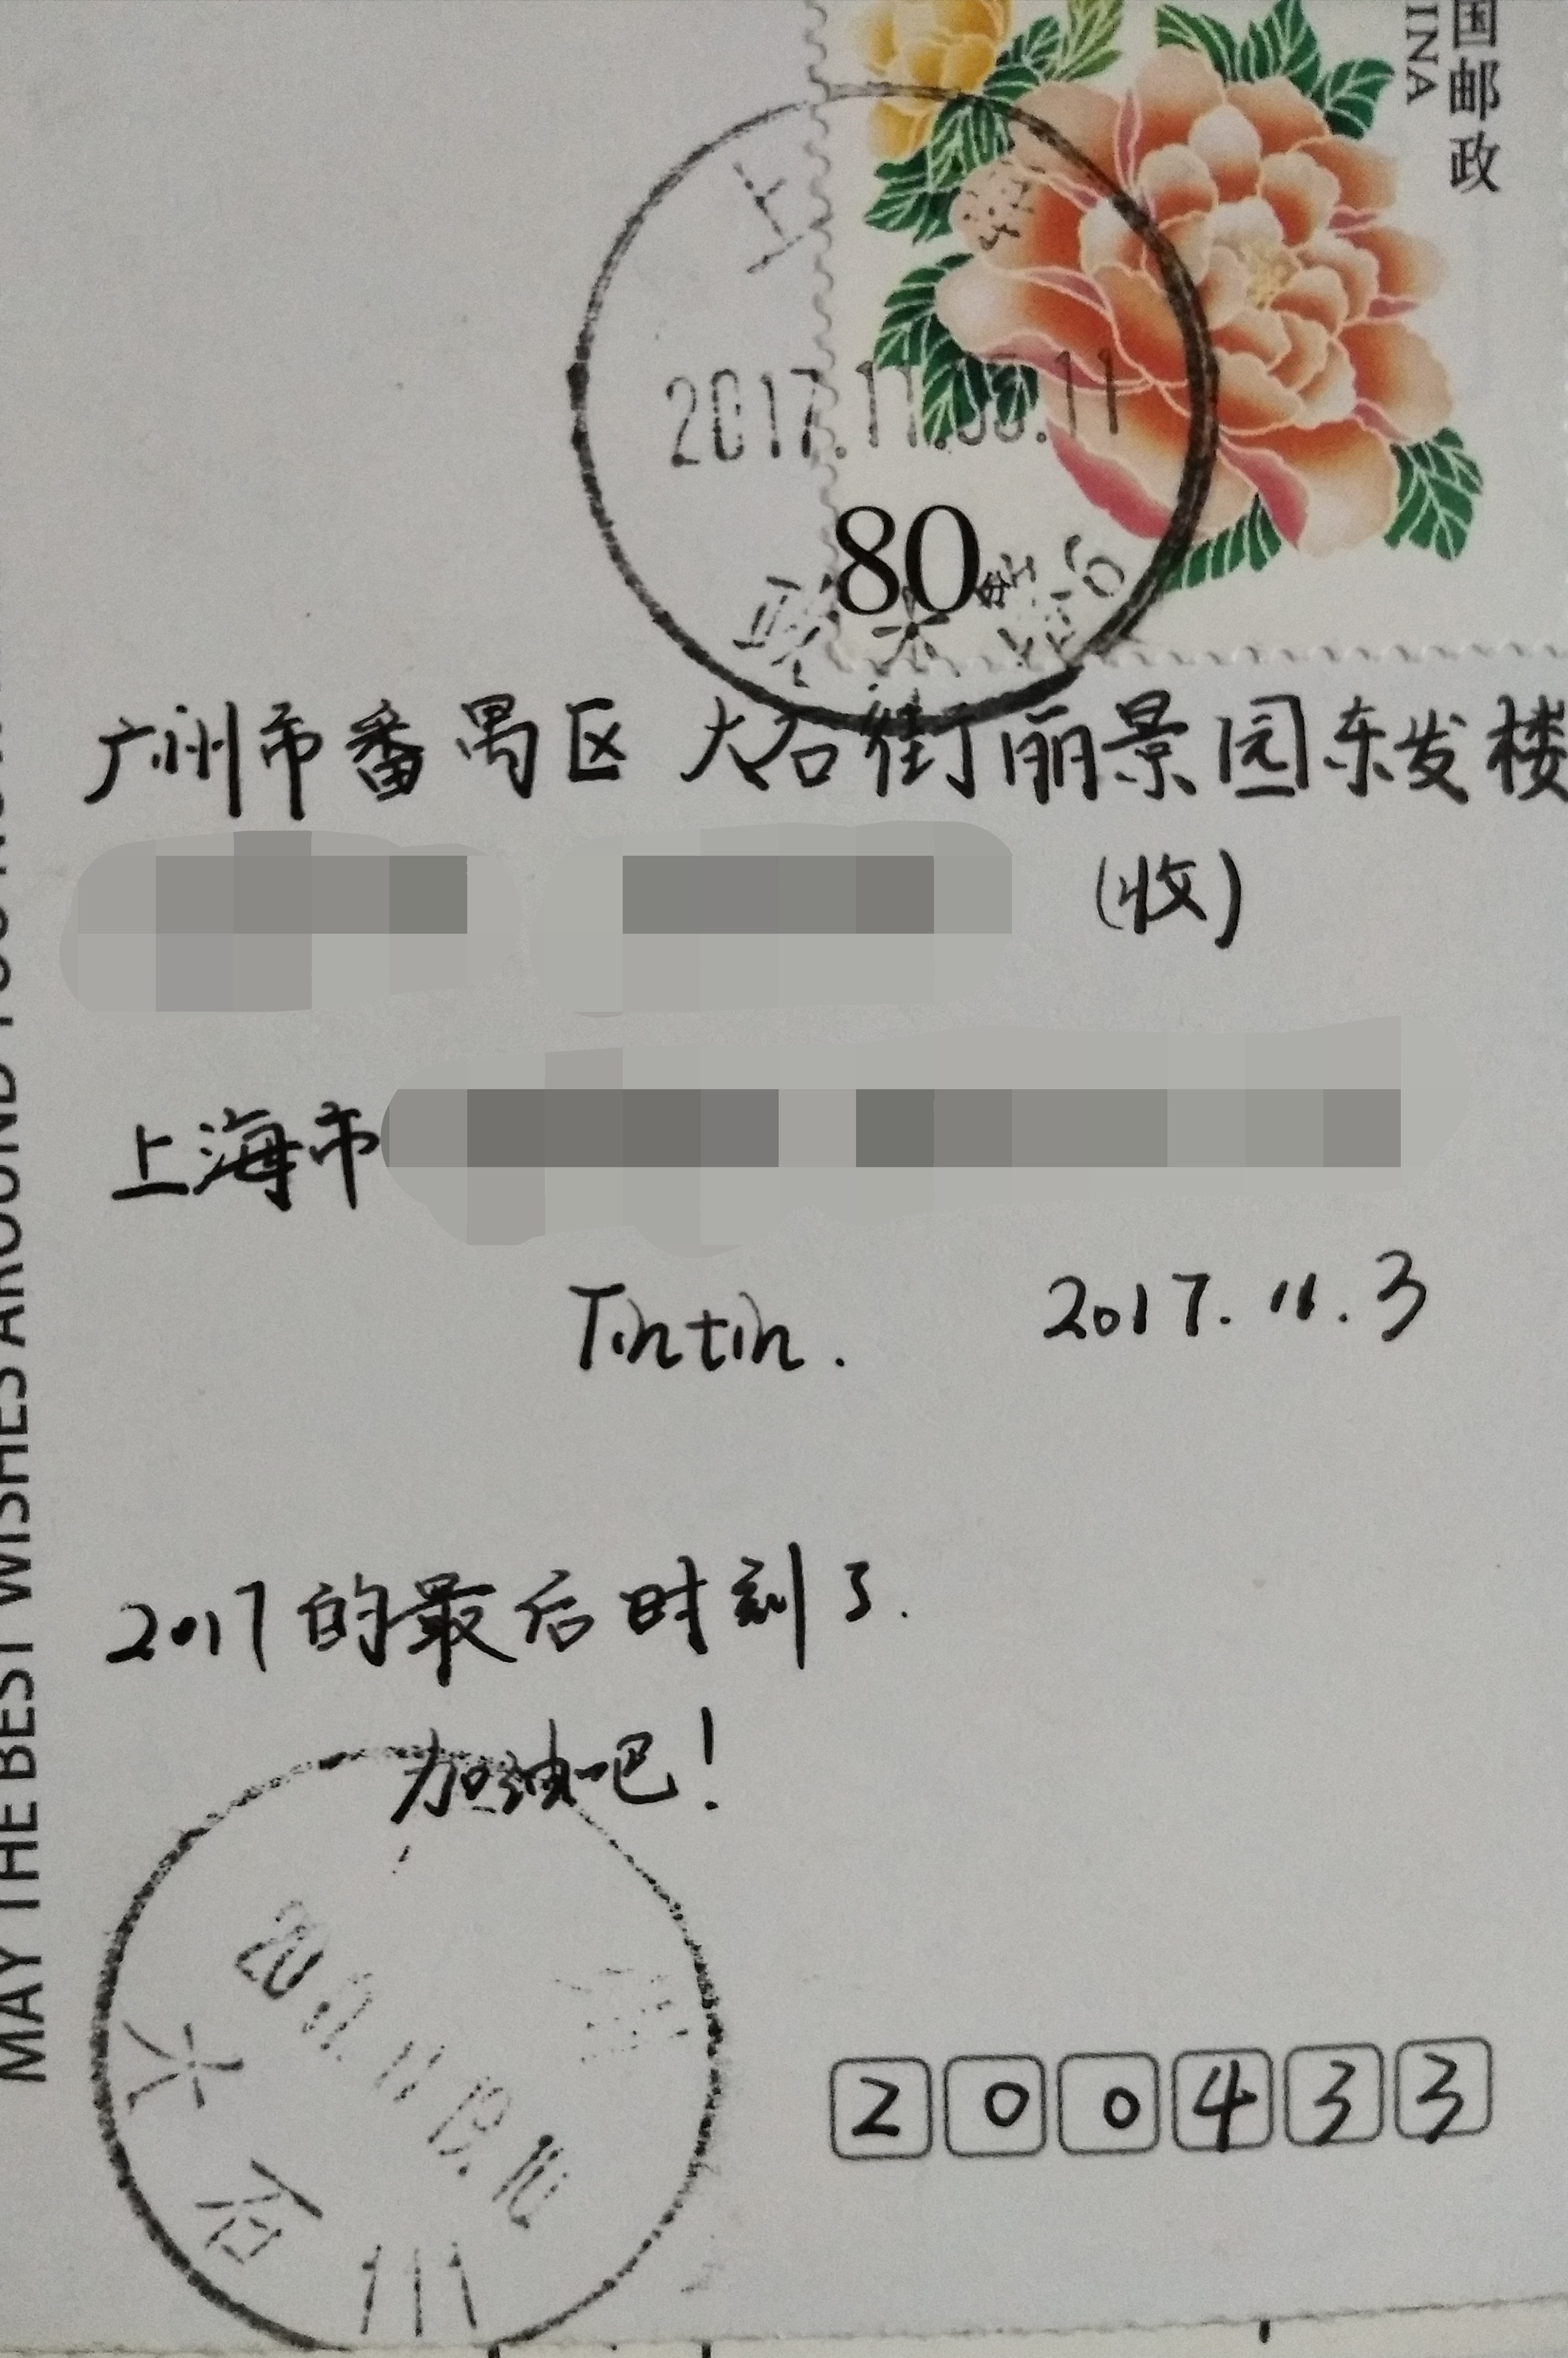 国邮政
INA
上
2017.11.05.11
80分
广州市番禺区 大石街丽景园东发楼
(收)
上海市
Tintin. 2017.11.3
2017的最后时刻了.
加油吧!
大石
200433
MAY THE BEST WISHES AROUND YOU